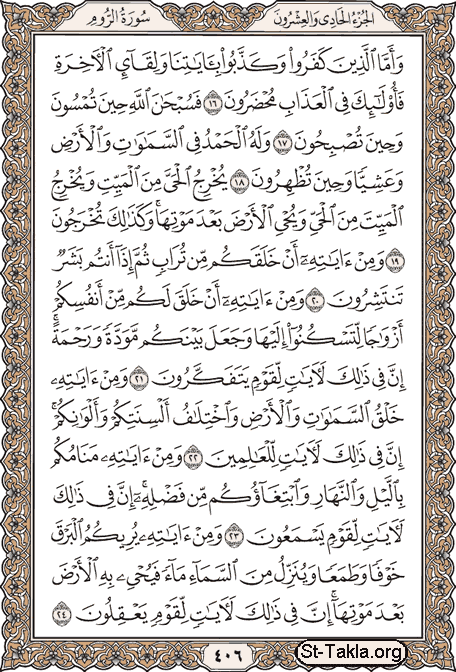 الجزء الحادي والعشرون سورة الروم
وَأَمَّا ٱلَّذِينَ كَفَرُوا۟ وَكَذَّبُوا۟ بِـَٔايَٰتِنَا وَلِقَآئِ ٱلْءَاخِرَةِ
فَأُو۟لَٰٓئِكَ فِى ٱلْعَذَابِ مُحْضَرُونَ ١٦ فَسُبْحَٰنَ ٱللَّهِ حِينَ تُمْسُونَ
وَحِينَ تُصْبِحُونَ ١٧ وَلَهُ ٱلْحَمْدُ فِى ٱلسَّمَٰوَٰتِ وَٱلْأَرْضِ
وَعَشِيًّا وَحِينَ تُظْهِرُونَ ١٨ يُخْرِجُ ٱلْحَىَّ مِنَ ٱلْمَيِّتِ وَيُخْرِجُ
ٱلْمَيِّتَ مِنَ ٱلْحَىِّ وَيُحْىِ ٱلْأَرْضَ بَعْدَ مَوْتِهَا ۚ وَكَذَٰلِكَ تُخْرَجُونَ
١٩ وَمِنْ ءَايَٰتِهِۦٓ أَنْ خَلَقَكُم مِّن تُرَابٍ ثُمَّ إِذَآ أَنتُم بَشَرٌ
تَنتَشِرُونَ ٢٠ وَمِنْ ءَايَٰتِهِۦٓ أَنْ خَلَقَ لَكُم مِّنْ أَنفُسِكُمْ
أَزْوَٰجًا لِّتَسْكُنُوٓا۟ إِلَيْهَا وَجَعَلَ بَيْنَكُم مَّوَدَّةً وَرَحْمَةً ۚ
إِنَّ فِى ذَٰلِكَ لَءَايَٰتٍ لِّقَوْمٍ يَتَفَكَّرُونَ ٢١ وَمِنْ ءَايَٰتِهِۦ
خَلْقُ ٱلسَّمَٰوَٰتِ وَٱلْأَرْضِ وَٱخْتِلَٰفُ أَلْسِنَتِكُمْ وَأَلْوَٰنِكُمْ ۚ
إِنَّ فِى ذَٰلِكَ لَءَايَٰتٍ لِّلْعَٰلِمِينَ ٢٢ وَمِنْ ءَايَٰتِهِۦ مَنَامُكُم
بِٱلَّيْلِ وَٱلنَّهَارِ وَٱبْتِغَآؤُكُم مِّن فَضْلِهِۦٓ ۚ إِنَّ فِى ذَٰلِكَ
لَءَايَٰتٍ لِّقَوْمٍ يَسْمَعُونَ ٢٣ وَمِنْ ءَايَٰتِهِۦ يُرِيكُمُ ٱلْبَرْقَ
خَوْفًا وَطَمَعًا وَيُنَزِّلُ مِنَ ٱلسَّمَآءِ مَآءً فَيُحْىِۦ بِهِ ٱلْأَرْضَ
بَعْدَ مَوْتِهَآ ۚ إِنَّ فِى ذَٰلِكَ لَءَايَٰتٍ لِّقَوْمٍ يَعْقِلُونَ ٢٤
٤٠٦
St-Takla.org